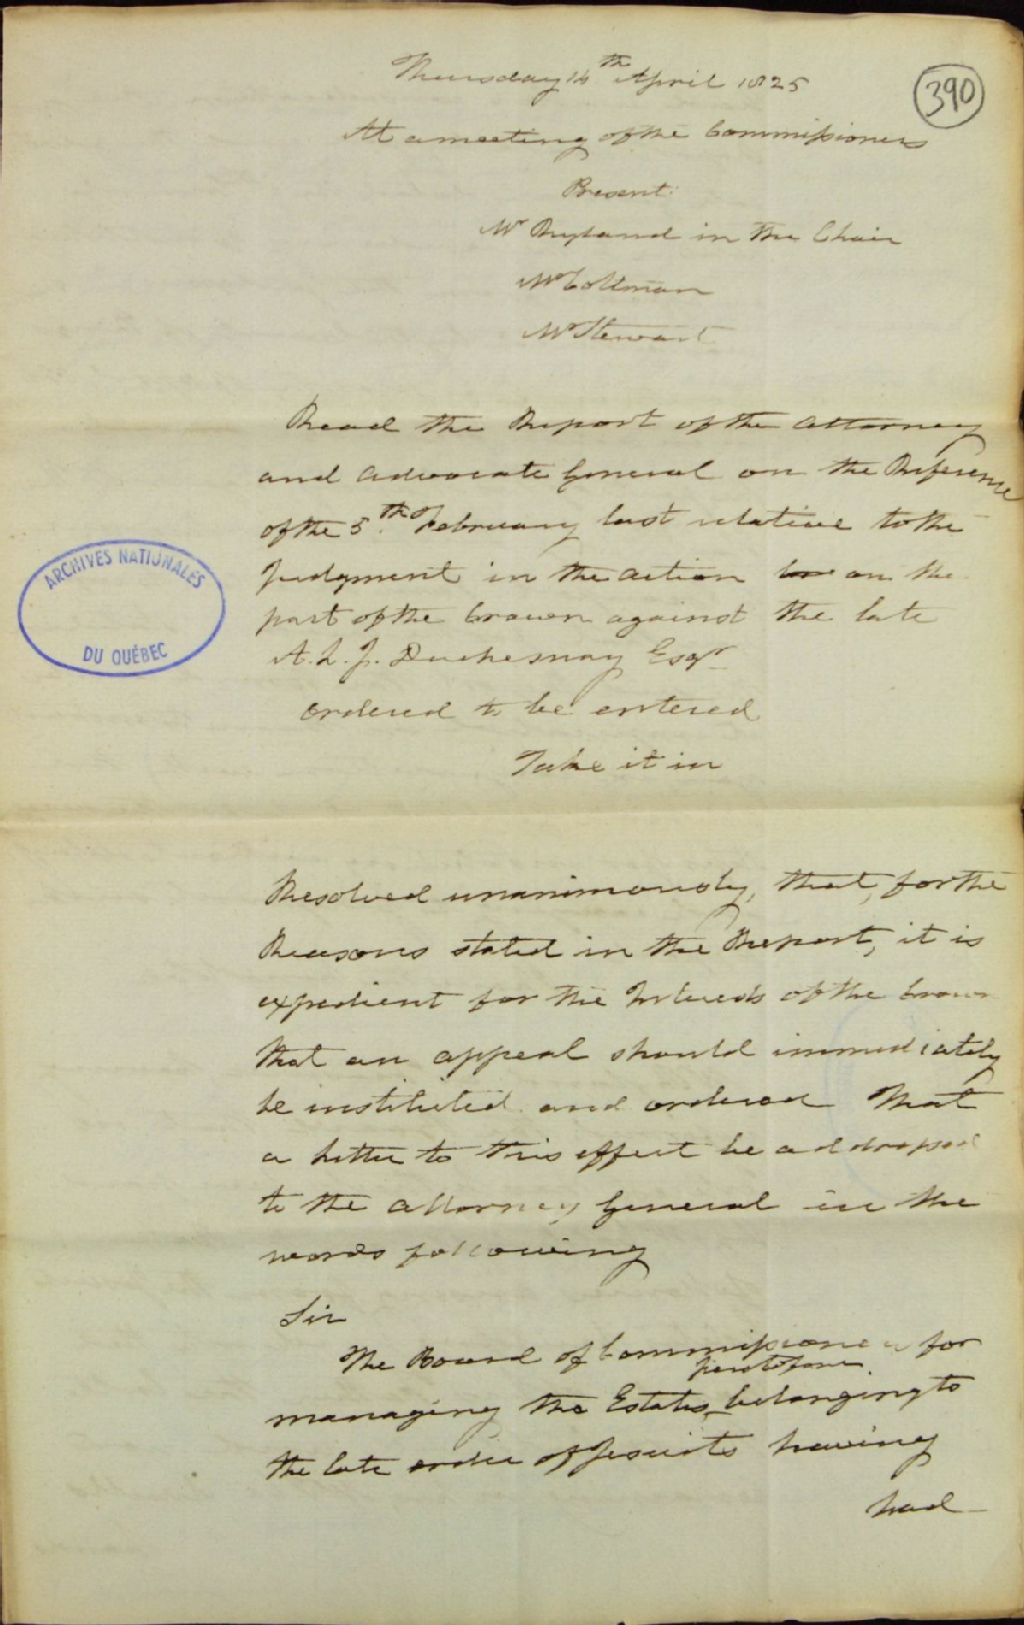 390
Thursday 14th April 1825
At a meeting of the Commissioners
Present
Mr Ryland in the Chair
Mr Coltman
Mr Stewart
Read the Report of the Attorney
and Advocate General on the Reference
of the 5th of February last relative to the
Judgment in the action on the
part of the Crown against the late
A. L. J. Duchesnay Esqr
ordered to be entered
Take it in
ARCHIVES NATIONALES
DU QUÉBEC
Resolved unanimously, that, for the
Reasons stated in the Report, it is
expedient for the Interests of the Crown
that an appeal should immediately
be instituted and ordered That
a letter to this effect be addressed
to the Attorney General in the
words following
Sir
The Board of Commissioners for
managing the Estates heretofore belonging to
the late order of Jesuits having
had